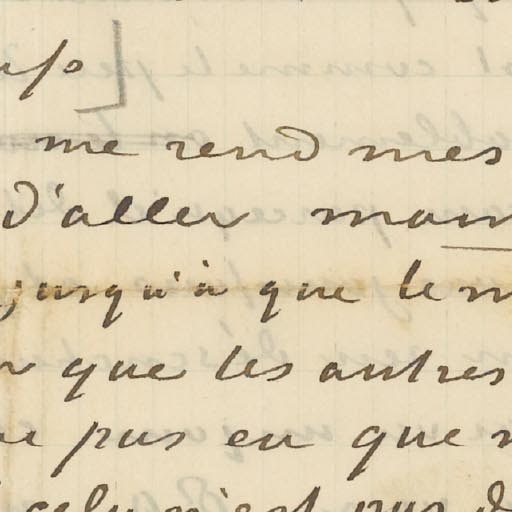 me rend mes
d'aller
jusqu'à que le
que les autres
pas eu que
cela n'est pas